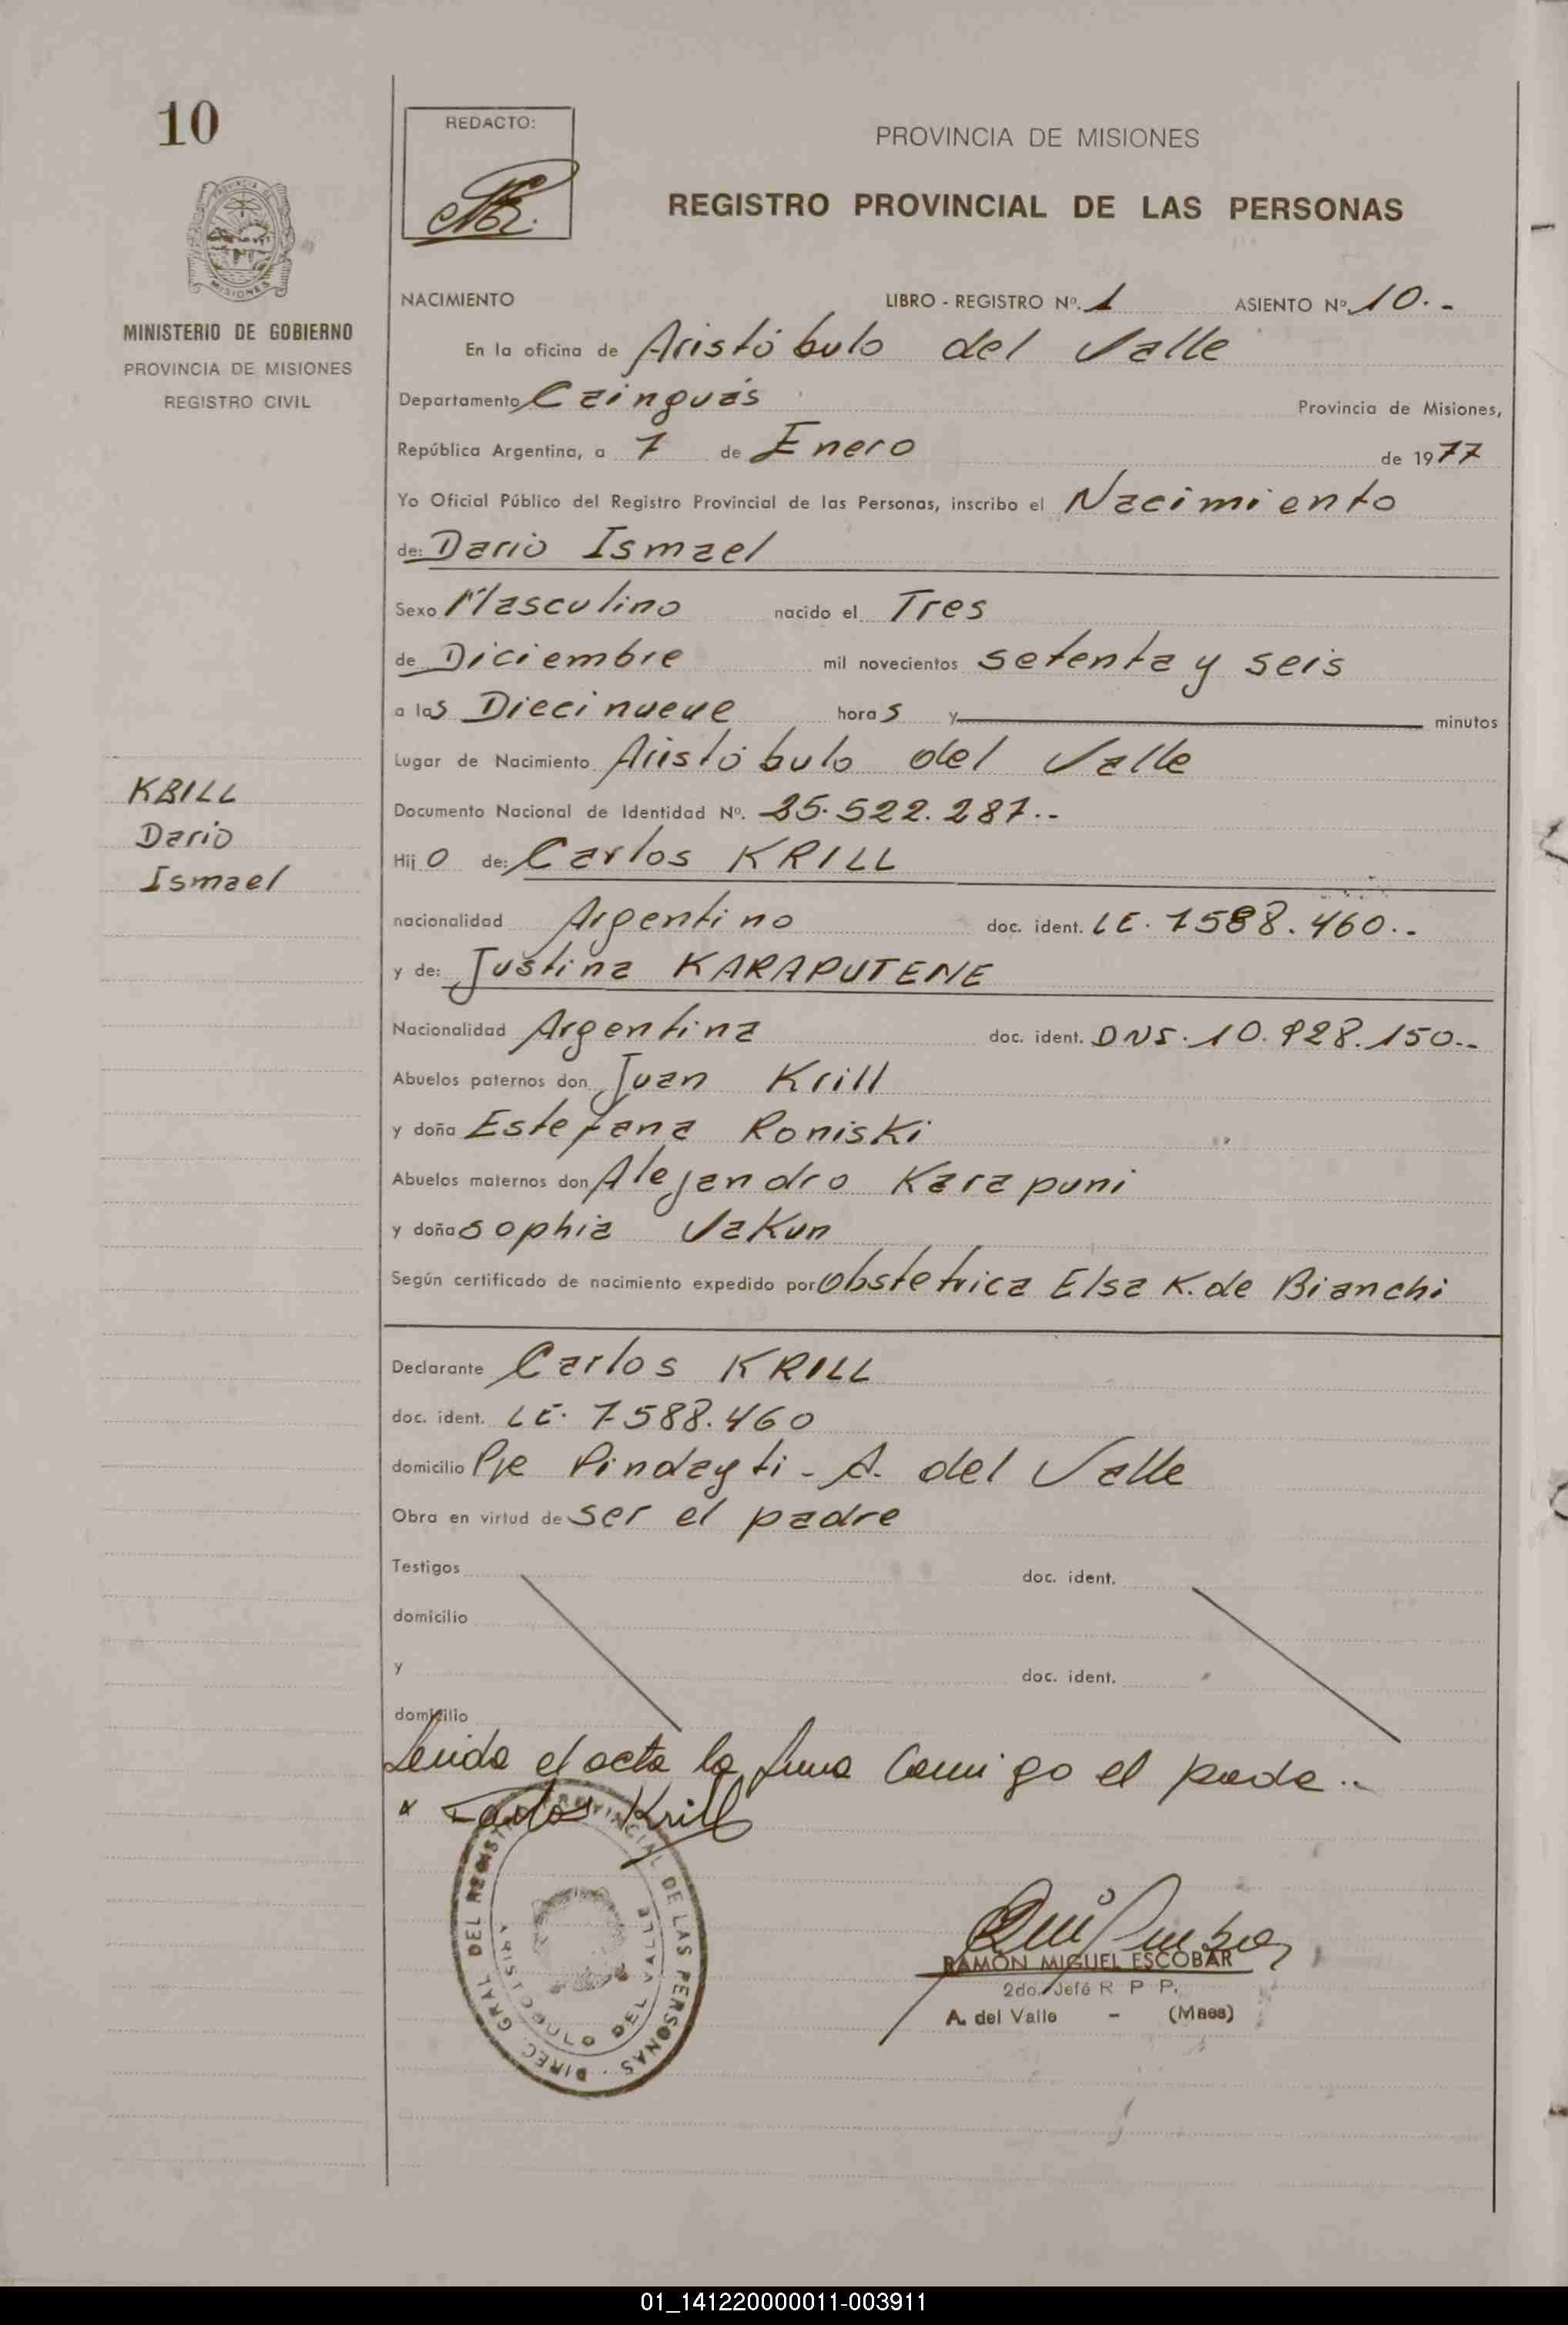 10
REDACTO:
PROVINCIA DE MISIONES
REGISTRO PROVINCIAL DE LAS PERSONAS
PROVINCIA DE
MISIONES
MINISTERIO DE GOBIERNO
PROVINCIA DE MISIONES
REGISTRO CIVIL
NACIMIENTO LIBRO - REGISTRO Nº. 1 ASIENTO Nº. 10.-
En la oficina de Aristóbulo del Valle
Departamento Cainguás Provincia de Misiones,
República Argentina, a 7 de Enero de 1977
Yo Oficial Público del Registro Provincial de las Personas, inscribo el Nacimiento
de: Dario Ismael
Sexo Masculino nacido el Tres
de Diciembre mil novecientos setenta y seis
a las Diecinueve horas y minutos
Lugar de Nacimiento Aristóbulo del Valle
KRILL
Dario
Ismael
Documento Nacional de Identidad Nº. 25.522.287.-
Hijo de: Carlos KRILL
nacionalidad Argentino doc. ident. LE. 7588.460.-
y de: Justina KARAPUTENE
Nacionalidad Argentina doc. ident. DNI. 10.928.150.-
Abuelos paternos don Juan Krill
y doña Estefana Roniski
Abuelos maternos don Alejandro Karapuni
y doña Sophia Vakun
Según certificado de nacimiento expedido por Obstetrica Elsa K. de Bianchi
Declarante Carlos KRILL
doc. ident. LE. 7588.460
domicilio Pje Pindayti - A. del Valle
Obra en virtud de ser el padre
Testigos doc. ident.
domicilio
y doc. ident.
domicilio
Leida el acta la firma conmigo el padre.-
Carlos Krill
DIREC. GRAL DEL REGISTRO PROVINCIAL DE LAS PERSONAS
ARISTOBULO DEL VALLE
RAMÓN MIGUEL ESCOBAR
2do. Jefe R P P.
A. del Valle - (Mnes)
01_141220000011-003911